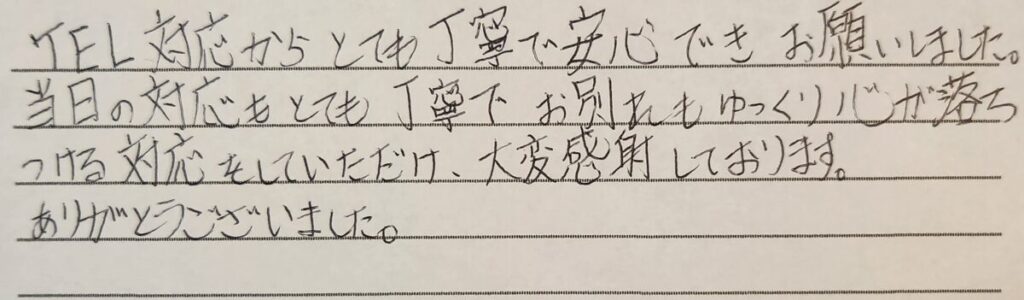 TEL対応からとても丁寧で安心できお願いしました。
当日の対応もとても丁寧でお別れもゆっくり心が落ち
つける対応をしていただけ、大変感射しております。
ありがとうございました。